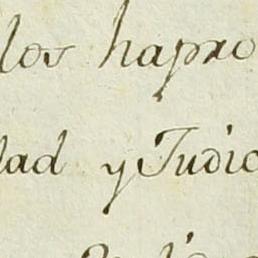 los hapro
dad y Judic